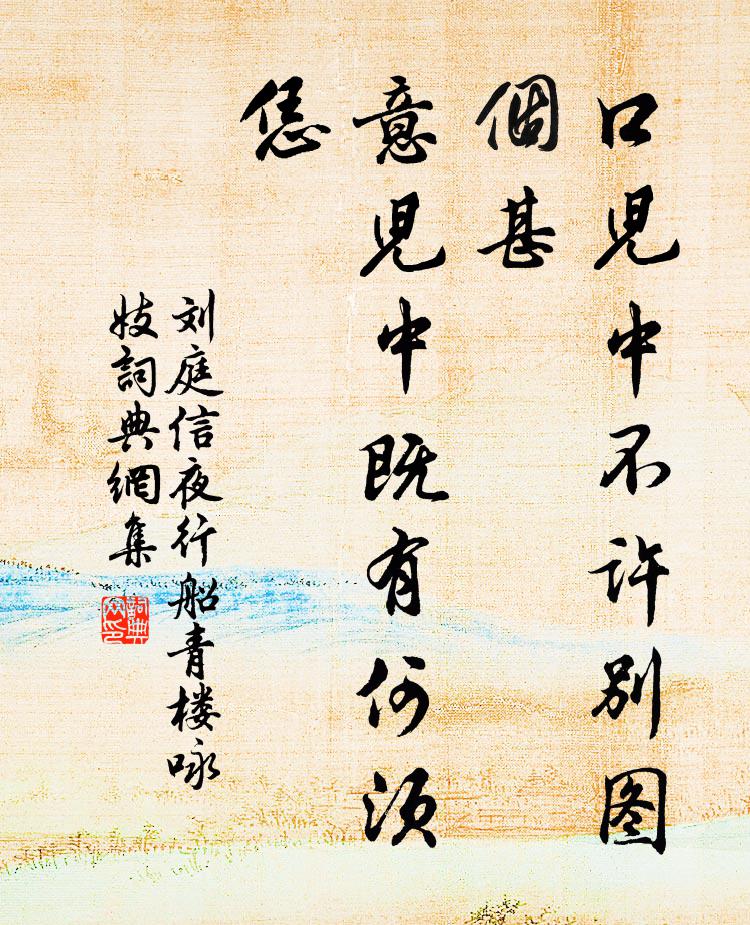 口児中不许别图
個甚
意児中既有何须
恁
刘庭信夜行船青楼咏
妓詞典網集
詞典